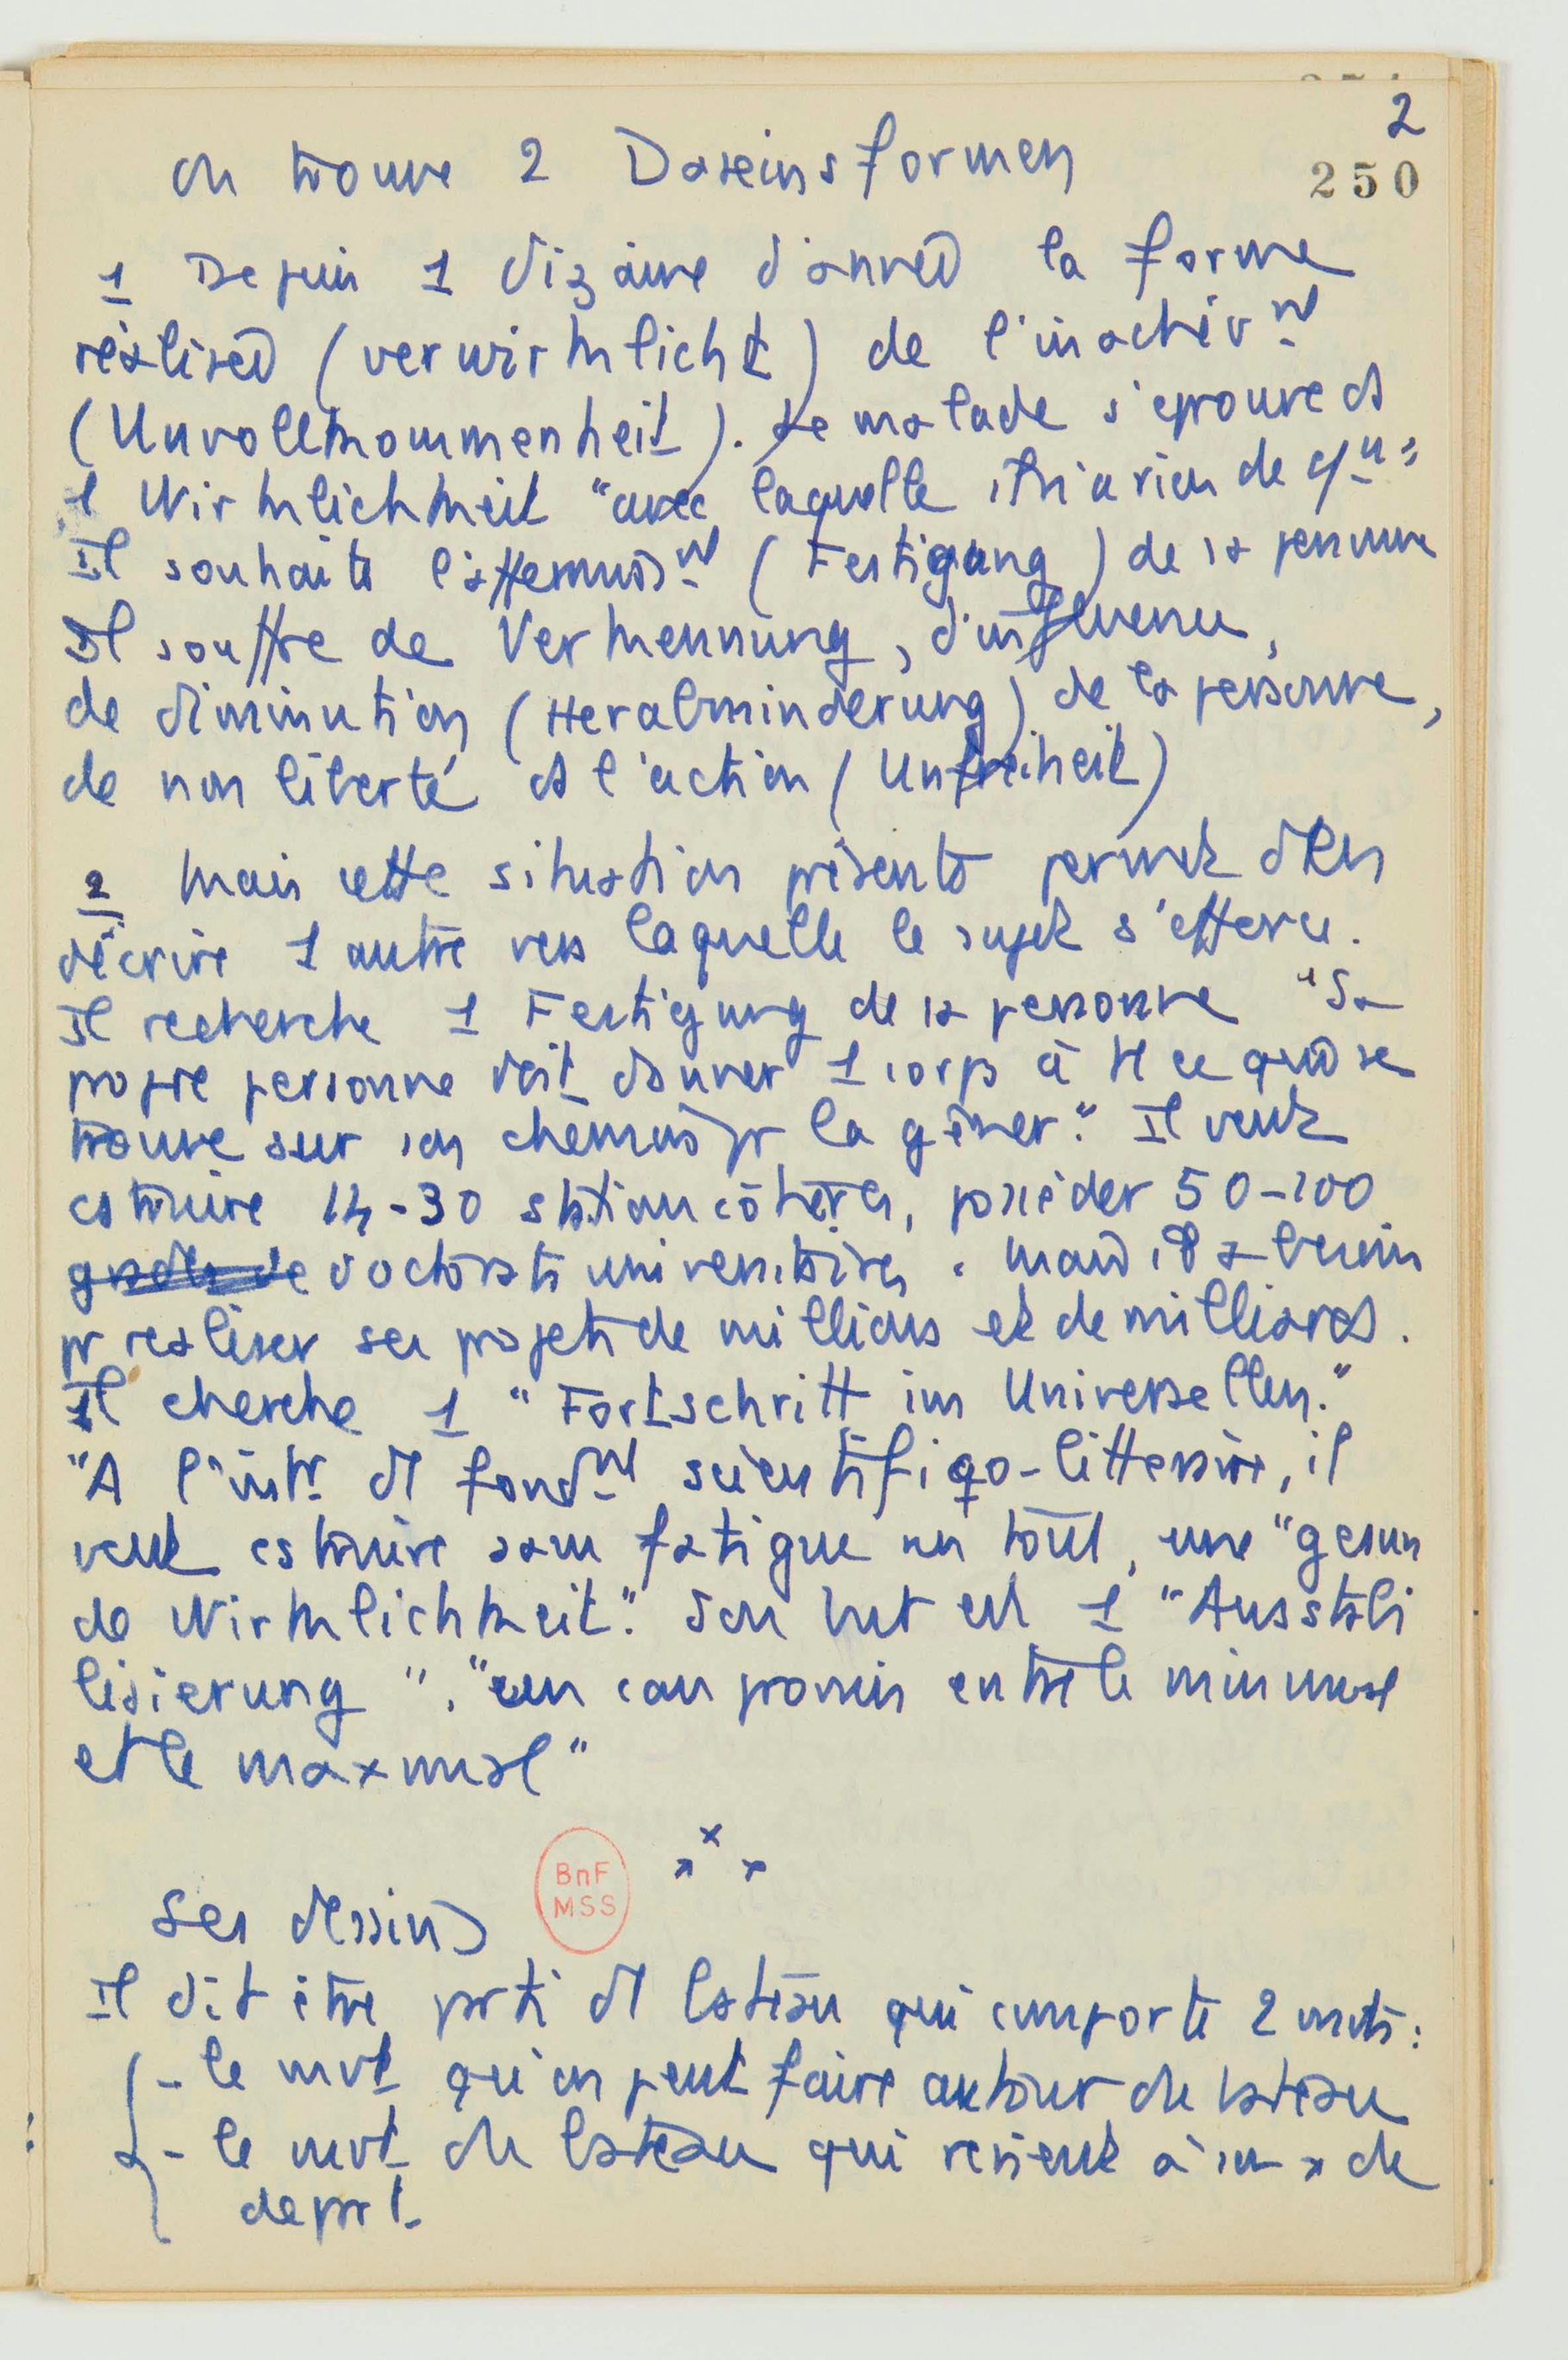 2
250
on trouve 2 Daseinsformen
1 Depuis 1 dizaine d'années la forme
réalisée (verwirklicht) de l'inachèvt
(Unvollkommenheit). Le malade s'éprouve ds
1 Wirklichkeit "avec laquelle il n'a rien de cun"
Il souhaite l'affermisst (Festigung) de sa personne
Il souffre de Verkennung, d'influence,
de diminution (Herabminderung) de la personne,
de non liberté ds l'action (Unfreiheit)
2 Mais cette situation présente permet d'en
décrire 1 autre vers laquelle le sujet s'efforce.
Il recherche 1 Festigung de sa personne "Sa
propre personne doit donner 1 corps à tt ce qui se
trouve sur son chemin pr la gêner." Il veut
cstruire 14-30 stations côtières, posséder 50-100
grades de doctorats universitaires. Mais il a besoin
pr réaliser ses projets de millions et de milliards.
Il cherche 1 "Fortschritt im Universellen."
"A l'intr d'1 fondt scientifiqo-littéraire, il
veut cstruire sans fatigue un tout, une "gesun
de Wirklichkeit". Son but est 1 "Ausstabi
lisierung", "un compromis entre le minimal
et le maximal"
x x x
BnF
MSS
Ses dessins
Il dit être parti d'1 bateau qui comporte 2 mvts :
- le mvt qu'on peut faire autour du bateau
- le mvt du bateau qui revient à son x de
départ.